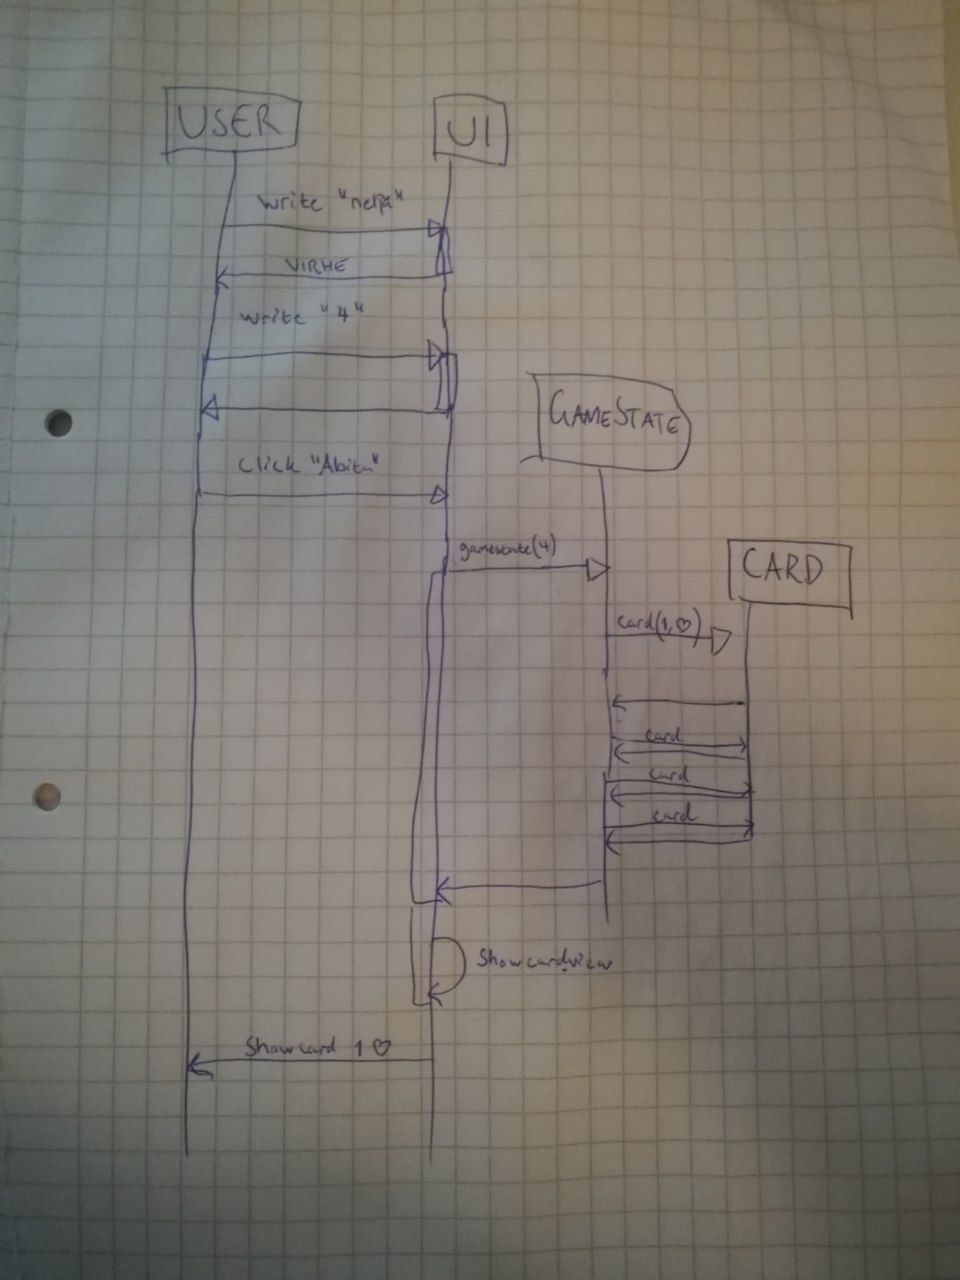 USER
UI
write "neljä"
VIRHE
write "4"
GAMESTATE
click "Aloita"
gamestate(4)
CARD
card(1,♡)
card
card
card
Showcardview
Showcard 1 ♡